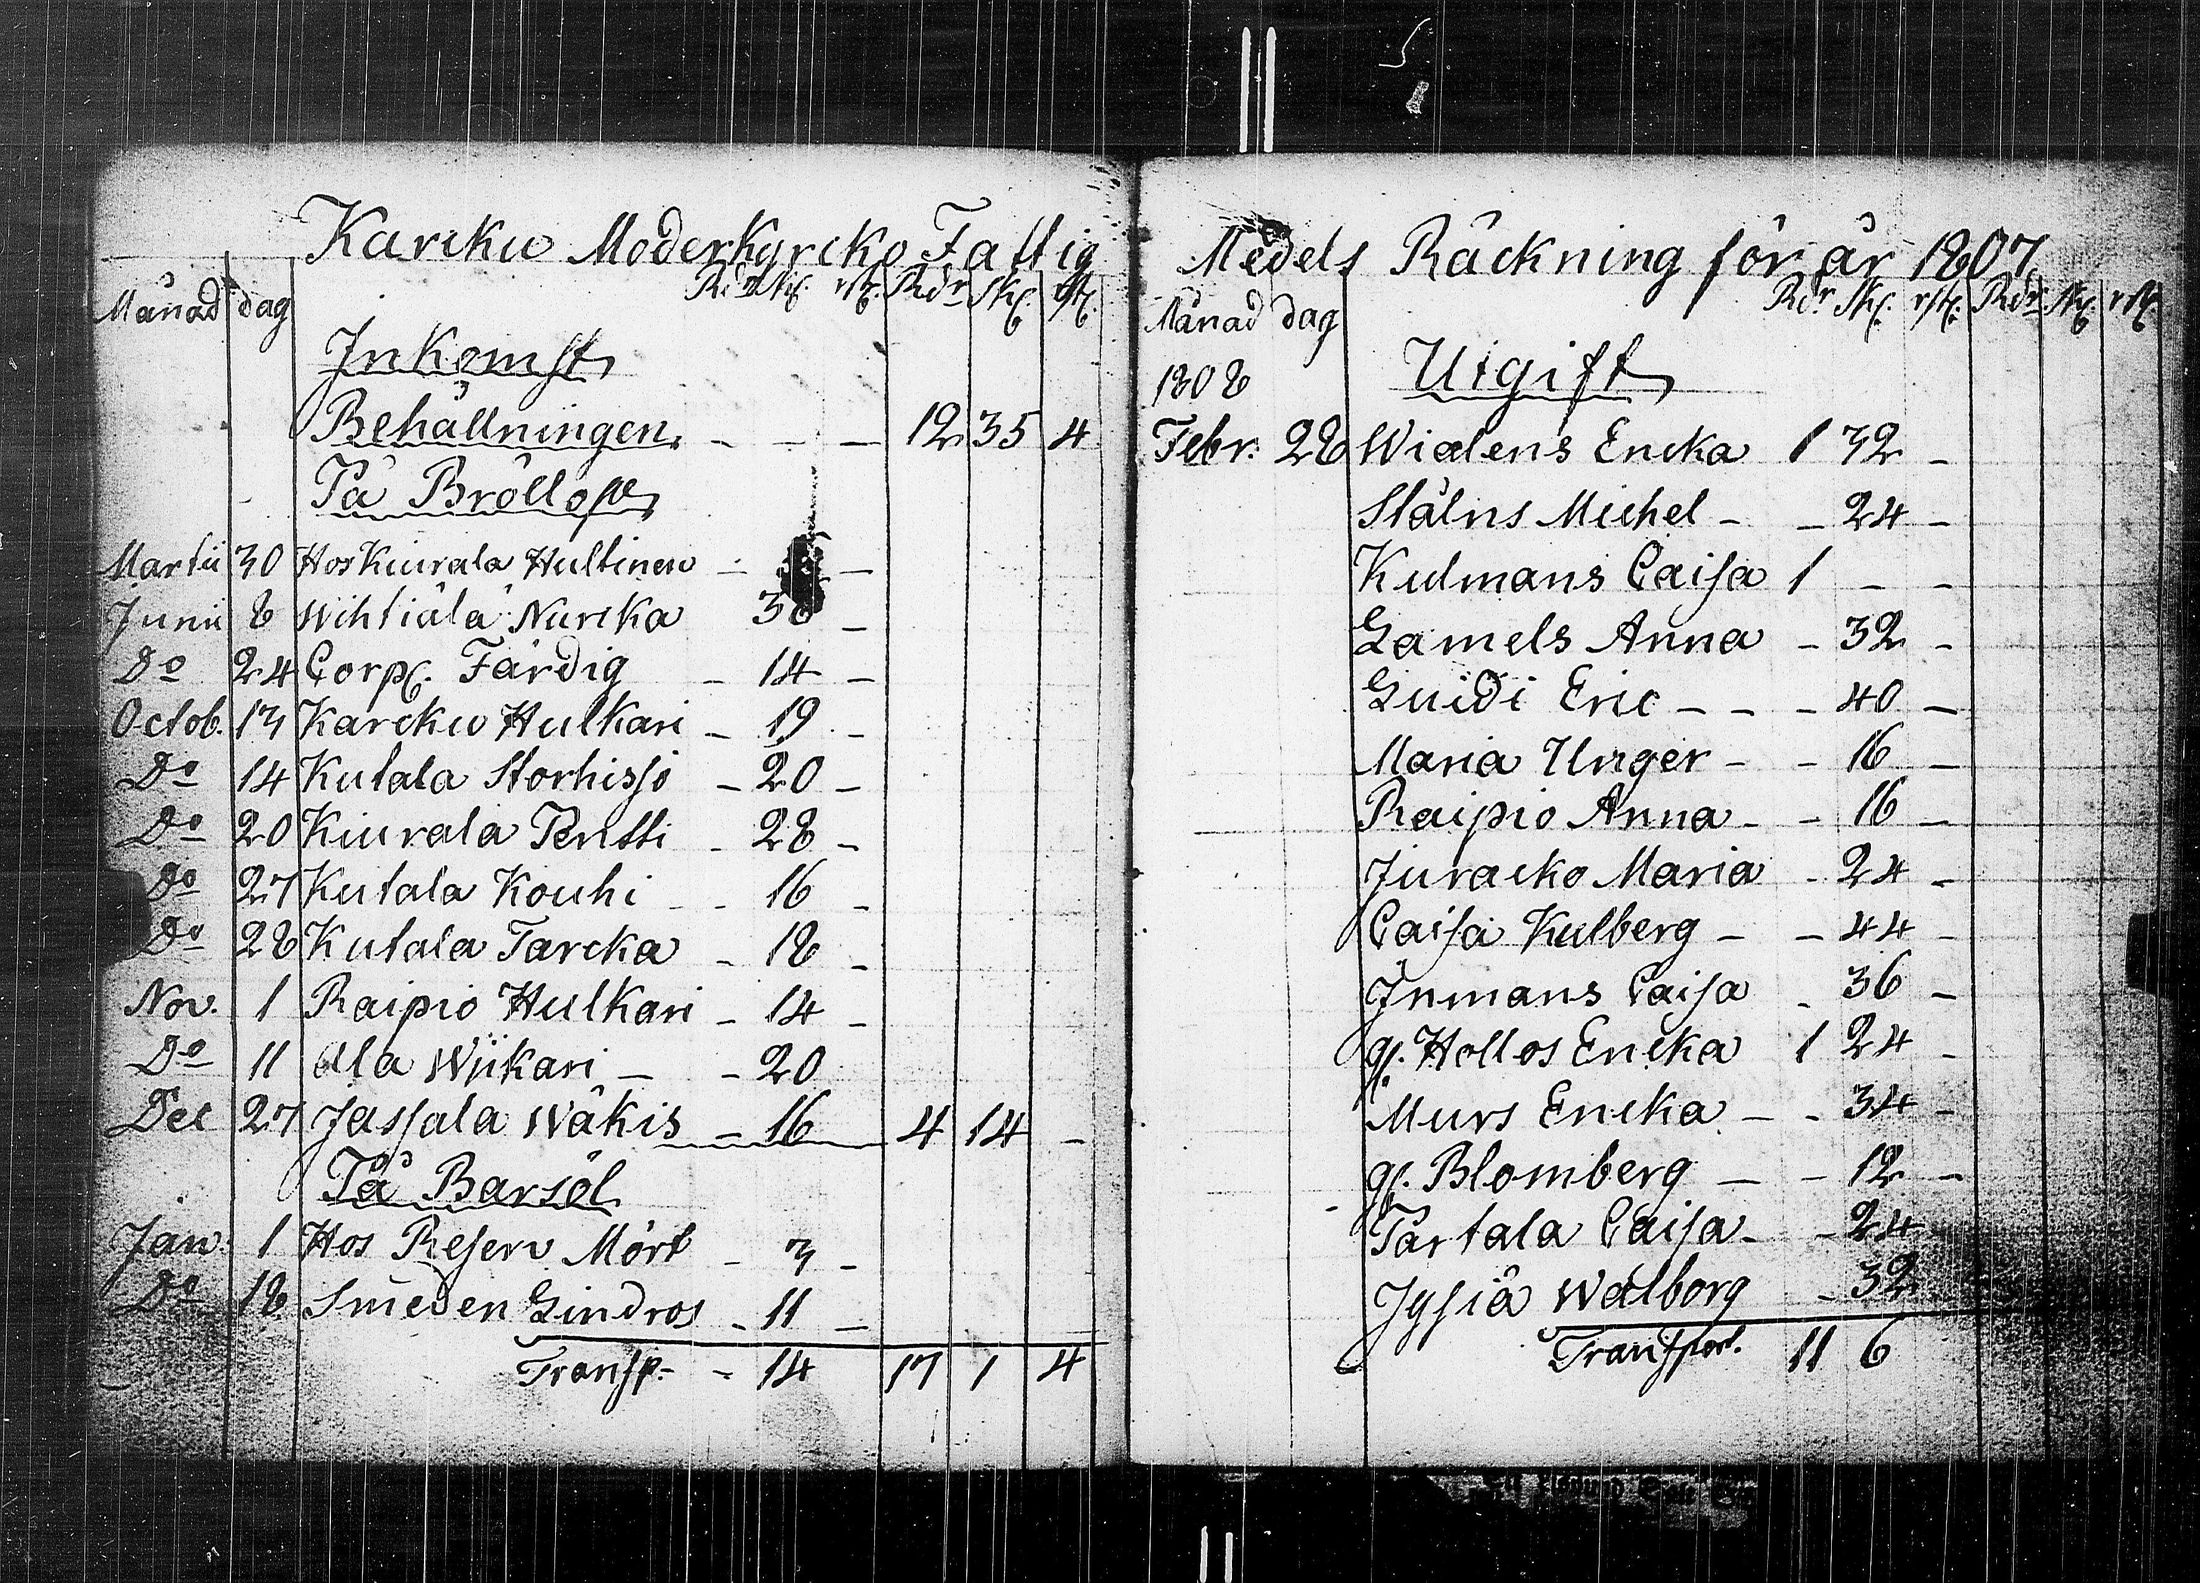 Karcku Moderkyrcko Fattig
Månad dag Rdr sk. rst. Rdr sk. rst.
Inkomst
Behållningen. - - - 12 35 4
På Bröllop
Martii 30 Hos Kiurala Hultinen - -
Junii 8 Wihtiälä Nurcka 38 -
Do 24 Corpl. Färdig - 14 -
Octob. 13 Karcku Hulkari - 19 -
Do 14 Kutala Storhissjö - 20 -
Do 20 Kiurala Pentti - 28 -
Do 27 Kutala Kouhi - - 16 -
Do 28 Kutala Tarcka - 18 -
Nov. 1 Raipio Hulkari - 14 -
Do 11 Ala Wiikari - - 20
Dec 27 Jassala Wäkis - 16 4 14 -
På Barsöl
Jan. 1 Hos Reserv Mört - 3 -
Do 18 Smeden Lindros - 11 -
Transp. - 14 17 1 4
Medels Räckning för år 1807.
Månad dag Rdr sk. rst. Rdr sk. rst.
1808 Utgift
Febr. 28 Wialens Ericka 1 32 -
Stålns Michel - - 24 -
Kulmans Caisa 1 - -
Gamels Anna - 32 -
Guidi Eric - - - 40 -
Maria Unger - - 16 -
Raipio Anna - - 16 -
Juracko Maria - 24 -
Caisa Kulberg - - 44 -
Inmans Caisa - 36 -
gl. Hollos Ericka 1 24 -
Murs Ericka - - 34 -
gl. Blomberg - - 12 -
Partala Caisa - - 24 -
Jysiä Walborg - 32
Transport. 11 6